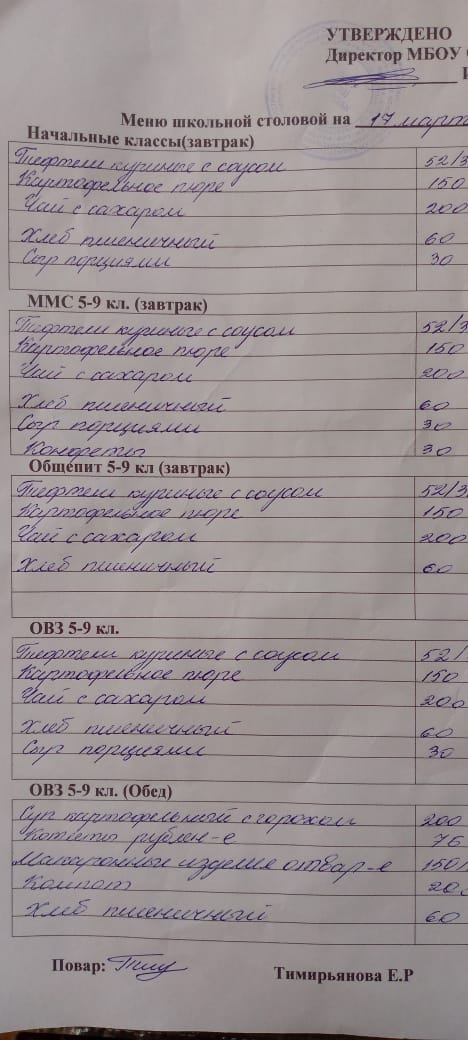 УТВЕРЖДЕНО
Директор МБОУ
Меню школьной столовой на 17 март
Начальные классы(завтрак)
Тефтели куриные с соусом 52/3
Картофельное пюре 150
Чай с сахаром 200
Хлеб пшеничный 60
Сыр порциями 30
ММС 5-9 кл. (завтрак)
Тефтели куриные с соусом 52/3
Картофельное пюре 150
Чай с сахаром 200
Хлеб пшеничный 60
Сыр порциями 30
Конфеты 30
Общепит 5-9 кл (завтрак)
Тефтели куриные с соусом 52/3
Картофельное пюре 150
Чай с сахаром 200
Хлеб пшеничный 60
ОВЗ 5-9 кл.
Тефтели куриные с соусом 52/
Картофельное пюре 150
Чай с сахаром 200
Хлеб пшеничный 60
Сыр порциями 30
ОВЗ 5-9 кл. (Обед)
Суп картофельный с горохом 200
Котлеты рублен-е 76
Макаронные изделия отвар-е 150
Компот 200
Хлеб пшеничный 60
Повар: Тимирьянова Е.Р